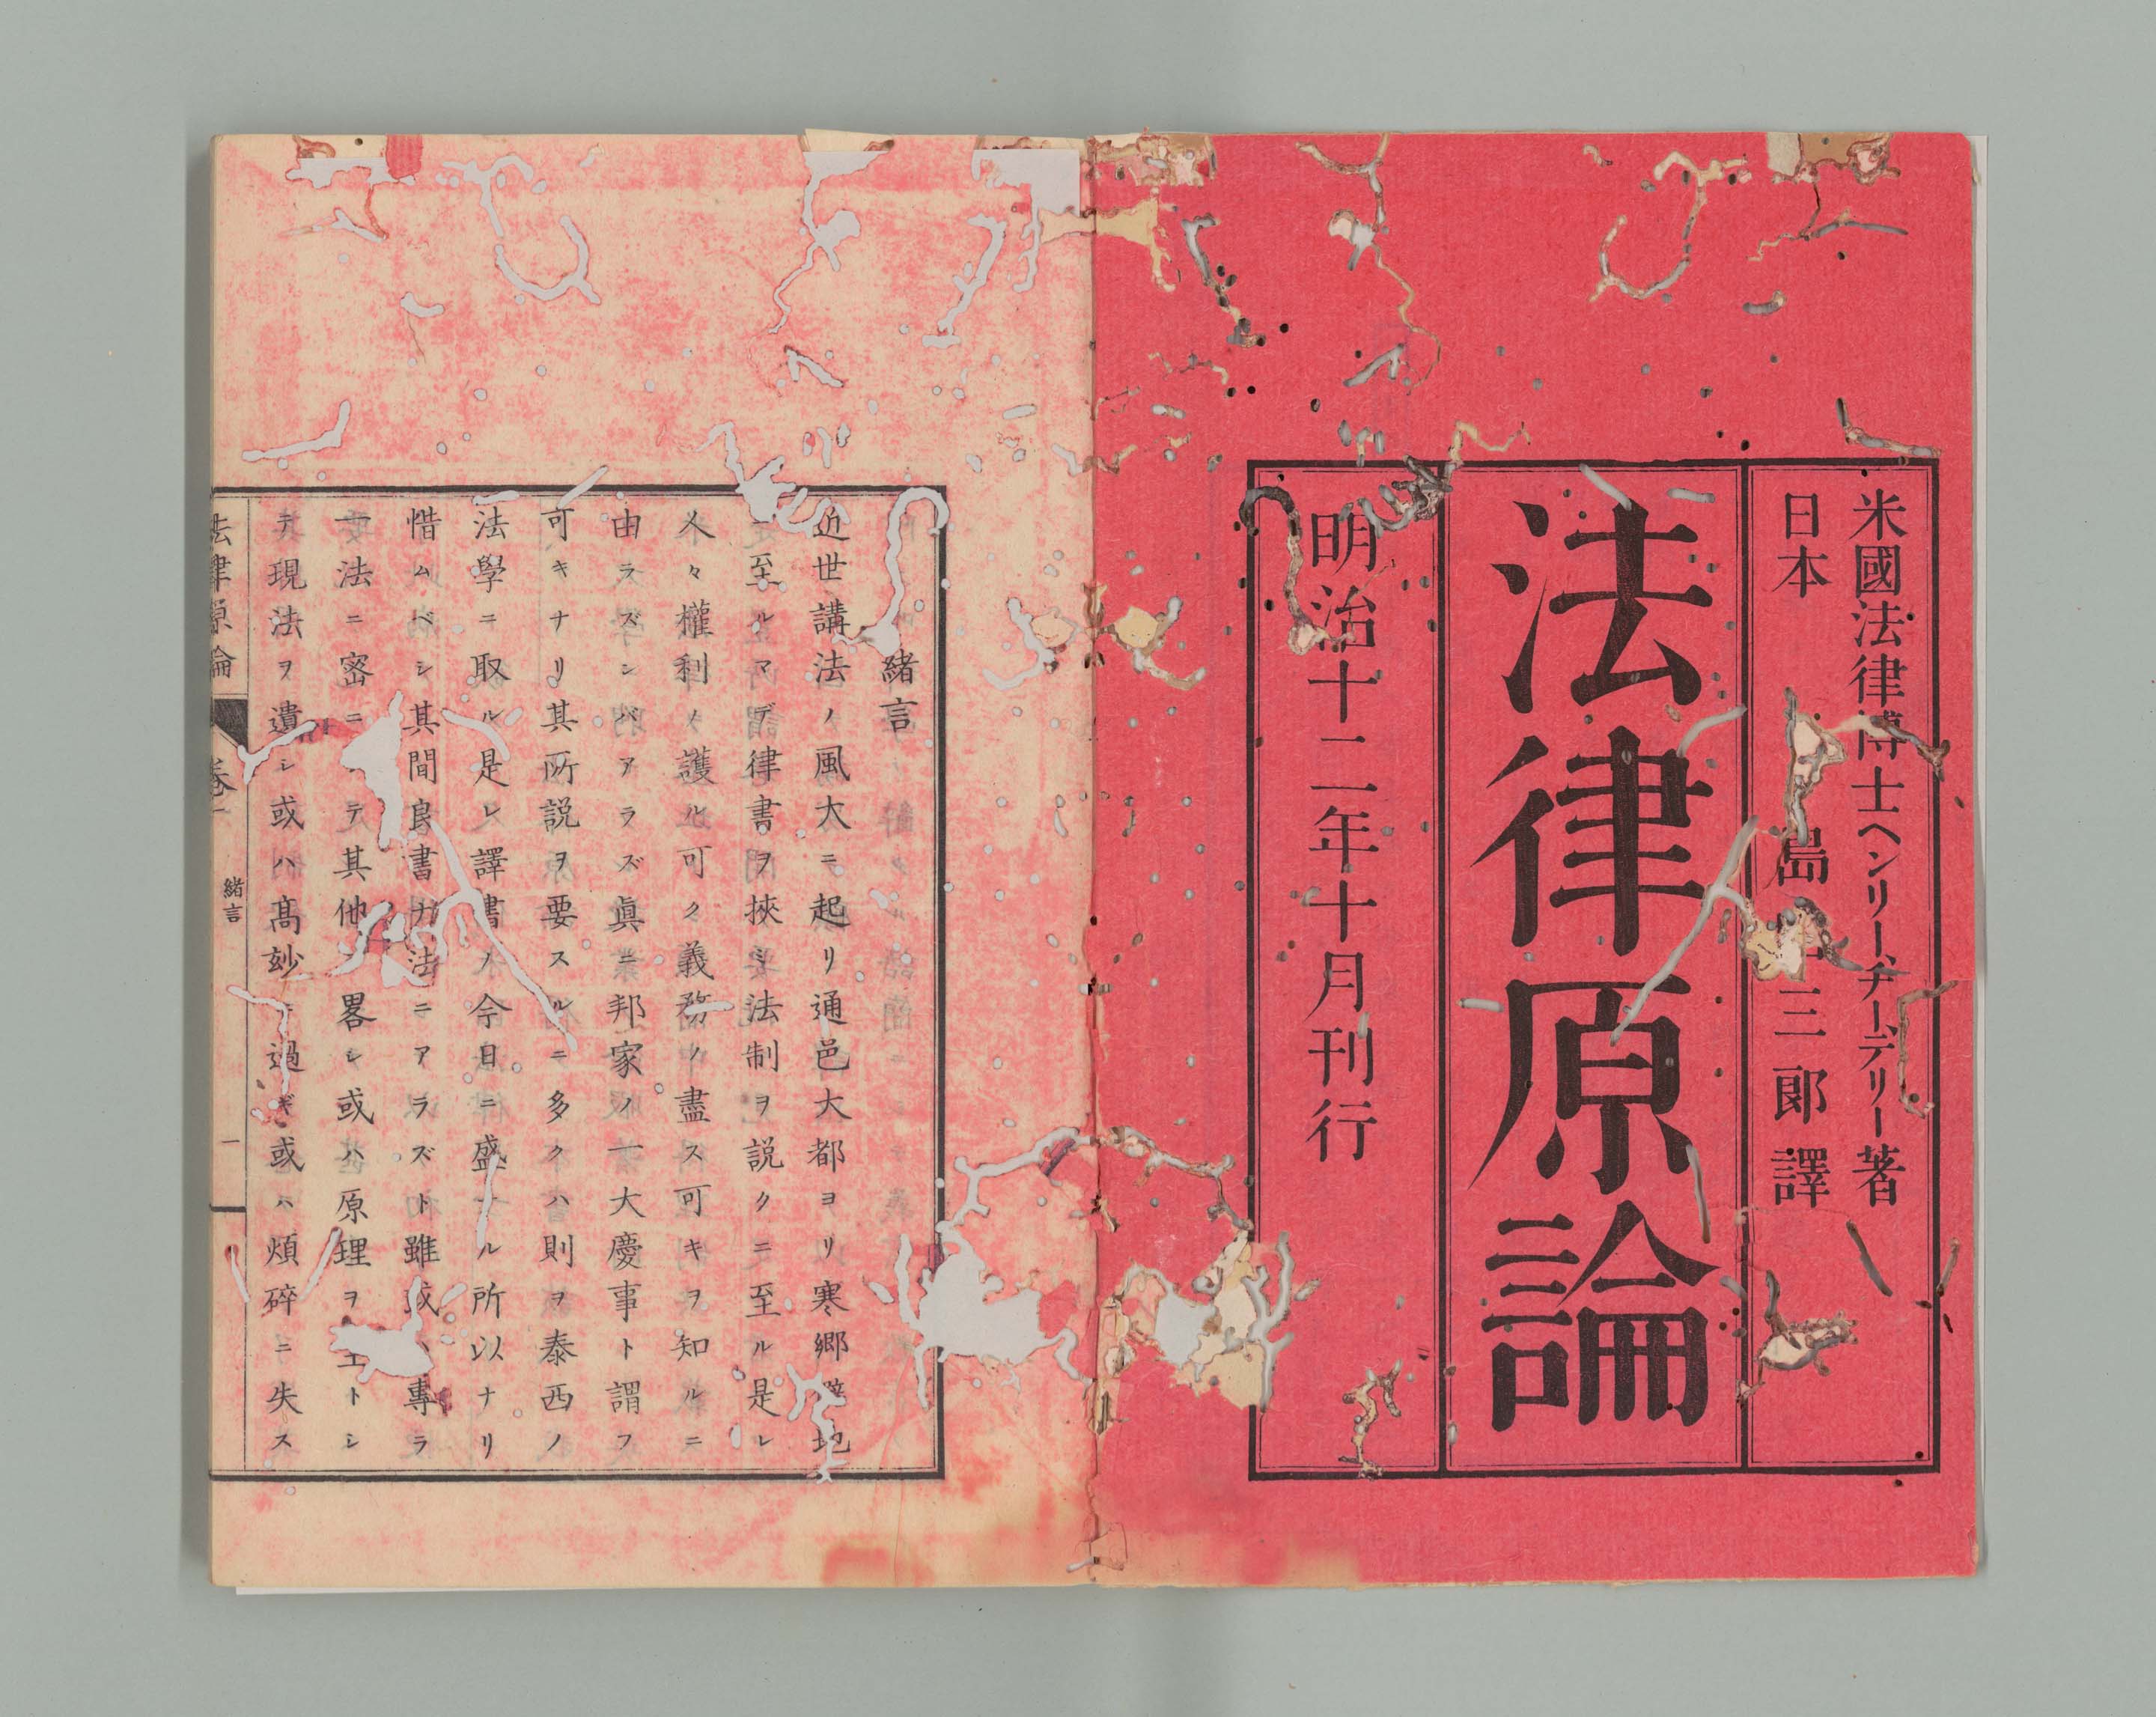 米國法律博士ヘンリー、チーデリー著
日本 島 三郎譯
法律原論
明治十二年十月刊行
緒言
近世講法ノ風大ニ起リ通邑大都ヨリ寒郷僻地
ニ至ルマデ律書ヲ挾ミ法制ヲ説クニ至ル是レ
人々權利ノ護ル可ク義務ノ盡ス可キヲ知ルニ
由ラズンバアラズ眞ニ邦家ノ一大慶事ト謂フ
可キナリ其所説ヲ要スルニ多クハ則ヲ泰西ノ
法學ニ取ル是レ譯書ノ今日ニ盛ナル所以ナリ
惜ムベシ其間良書ナ法ニアラズト雖或ハ專ラ
法ニ密ニ テ其他 畧シ或ハ原理ヲ主トシ
テ現法ヲ遺シ或ハ高玅ニ過ギ或ハ煩碎ニ失ス
法律原論 卷一 緒言 一